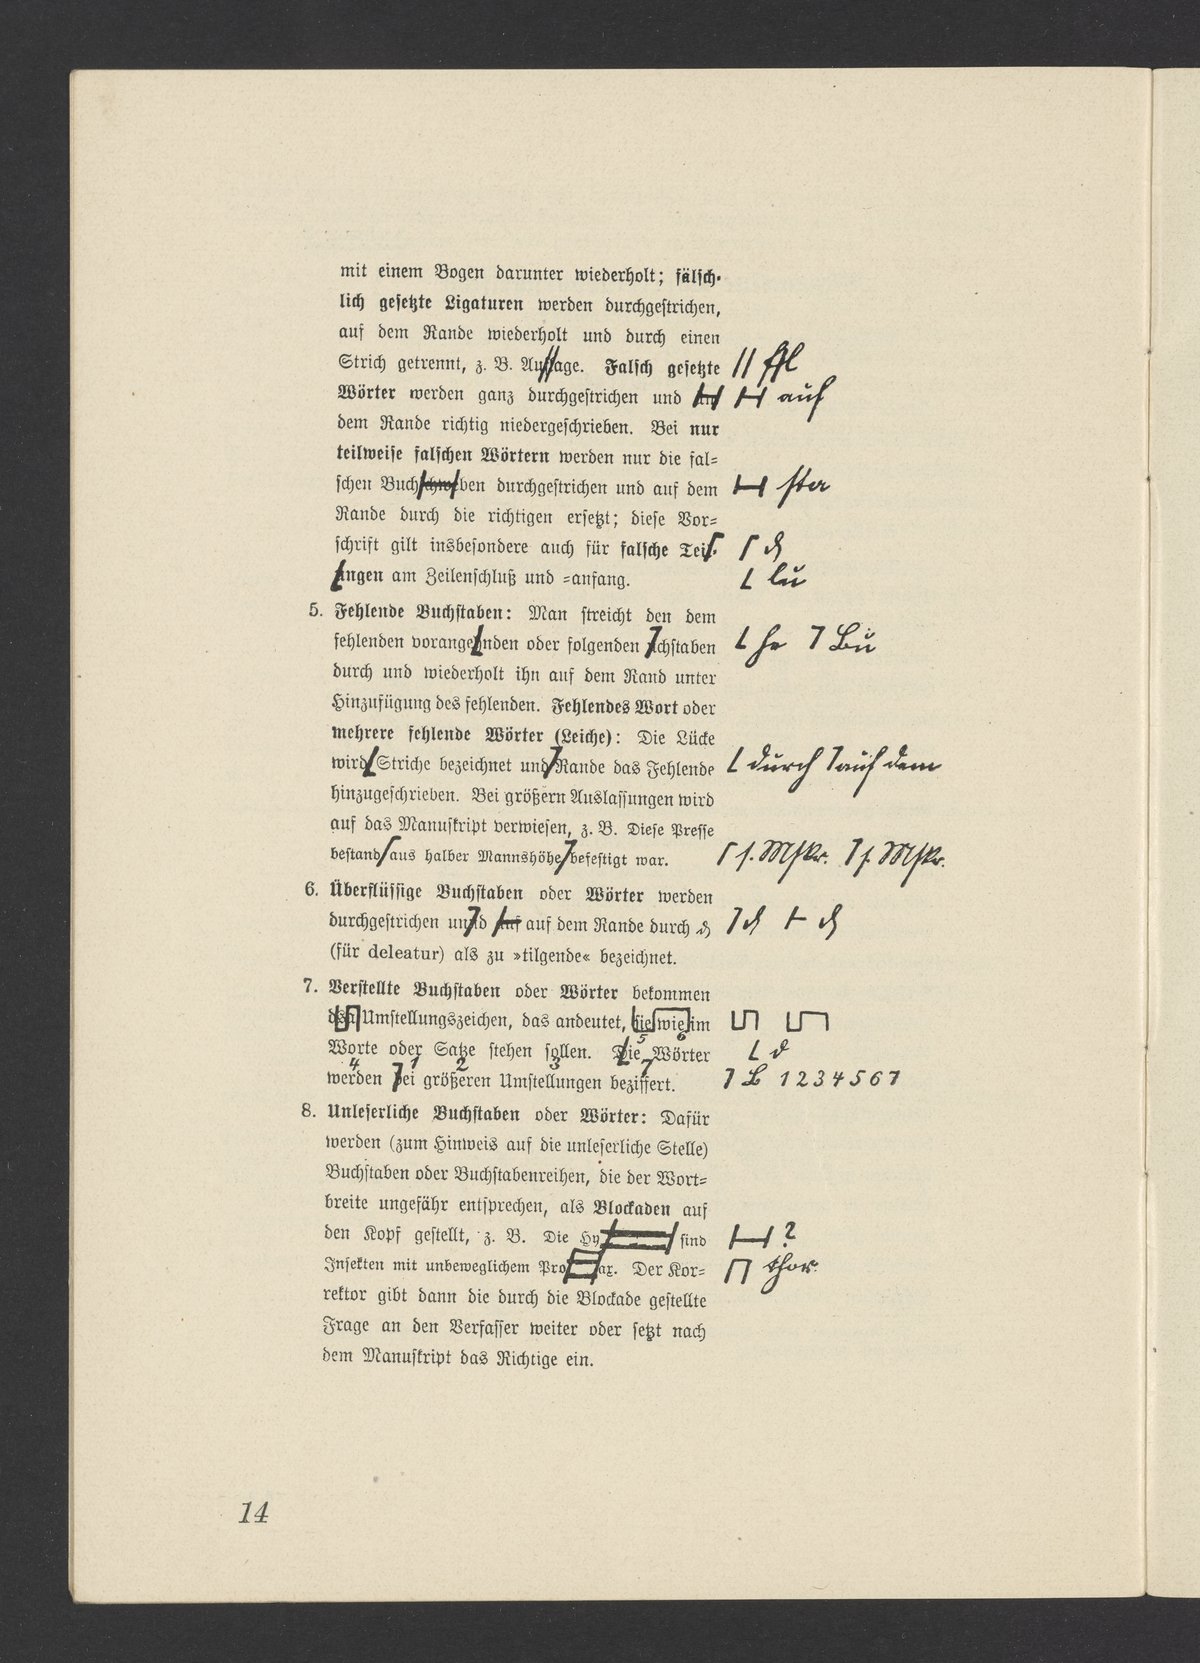 mit einem Bogen darunter wiederholt; fälsch-
lich gesetzte Ligaturen werden durchgestrichen,
auf dem Rande wiederholt und durch einen
Strich getrennt, z. B. Auffage. Falsch gesetzte // ffl
Wörter werden ganz durchgestrichen und auf
dem Rande richtig niedergeschrieben. Bei nur
teilweise falschen Wörtern werden nur die fal-
schen Buchschweben durchgestrichen und auf dem sta
Rande durch die richtigen ersetzt; diese Vor-
schrift gilt insbesondere auch für falsche Teil-
ungen am Zeilenschluß und -anfang. lu
5. Fehlende Buchstaben: Man streicht den dem
fehlenden vorangehnden oder folgenden uchstaben he Bu
durch und wiederholt ihn auf dem Rand unter
Hinzufügung des fehlenden. Fehlendes Wort oder
mehrere fehlende Wörter (Leiche): Die Lücke
wird Striche bezeichnet und Rande das Fehlende durch auf dem
hinzugeschrieben. Bei größern Auslassungen wird
auf das Manuskript verwiesen, z. B. Diese Presse
bestand aus halber Mannshöhe befestigt war. s. Mskr. s. Mskr.
6. Überflüssige Buchstaben oder Wörter werden
durchgestrichen unnd auf auf dem Rande durch ₰ ₰ ₰
(für deleatur) als zu »tilgende« bezeichnet.
7. Verstellte Buchstaben oder Wörter bekommen
dsa Umstellungszeichen, das andeutet, sie wie im
Worte oder Satze stehen sollen. Die Wörter d
werden bei größeren Umstellungen beziffert. B 1 2 3 4 5 6 7
8. Unleserliche Buchstaben oder Wörter: Dafür
werden (zum Hinweis auf die unleserliche Stelle)
Buchstaben oder Buchstabenreihen, die der Wort-
breite ungefähr entsprechen, als Blockaden auf
den Kopf gestellt, z. B. Die Hy sind ?
Insekten mit unbeweglichem Pro ax. Der Kor- thor
rektor gibt dann die durch die Blockade gestellte
Frage an den Verfasser weiter oder setzt nach
dem Manuskript das Richtige ein.
14